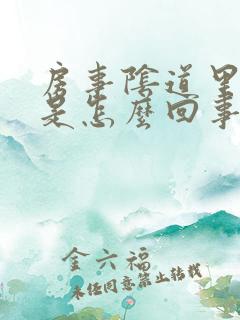 房事陰道里
是怎麼回事
金六福
未经同意禁止转载